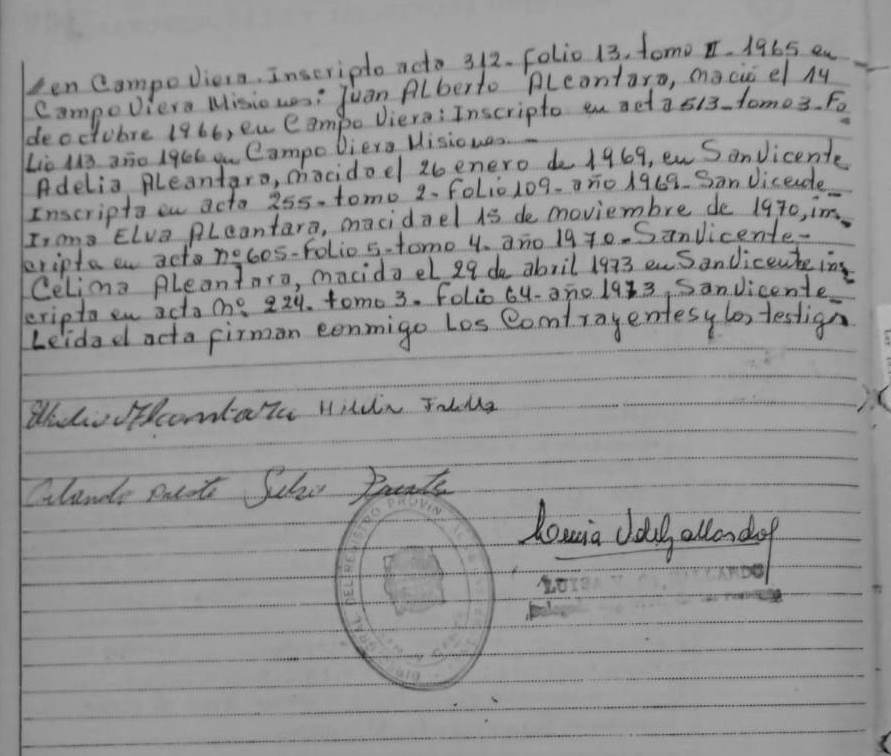 en Campo Viera. Inscripto acta 312. folio 13. tomo II. 1965 en
Campo Viera Misiones: Juan Alberto Alcantara, nació el 14
de octubre 1966, en Campo Viera: Inscripto en acta 513 tomo 3. Fo
Lio 113 año 1966 en Campo Viera Misiones.
Adelia Alcantara, nacida el 26 enero de 1969, en San Vicente
Inscripta en acta 255. tomo 2. Folio 109. año 1969. San Vicente
Irma Elva Alcantara, nacida el 15 de noviembre de 1970, ins
cripta en acta nº 605-Folio 5-tomo 4. año 1970. San Vicente-
Celina Alcantara, nacida el 29 de abril 1973 en San Vicente ins
cripta en acta nº 224. tomo 3. Folio 64- año 1973. San Vicente
Leída el acta firman conmigo Los Contrayentes y los testigos
Alcantara
Orlando Puente
LUISA V GALLARDO
REGISTRO PROVIN